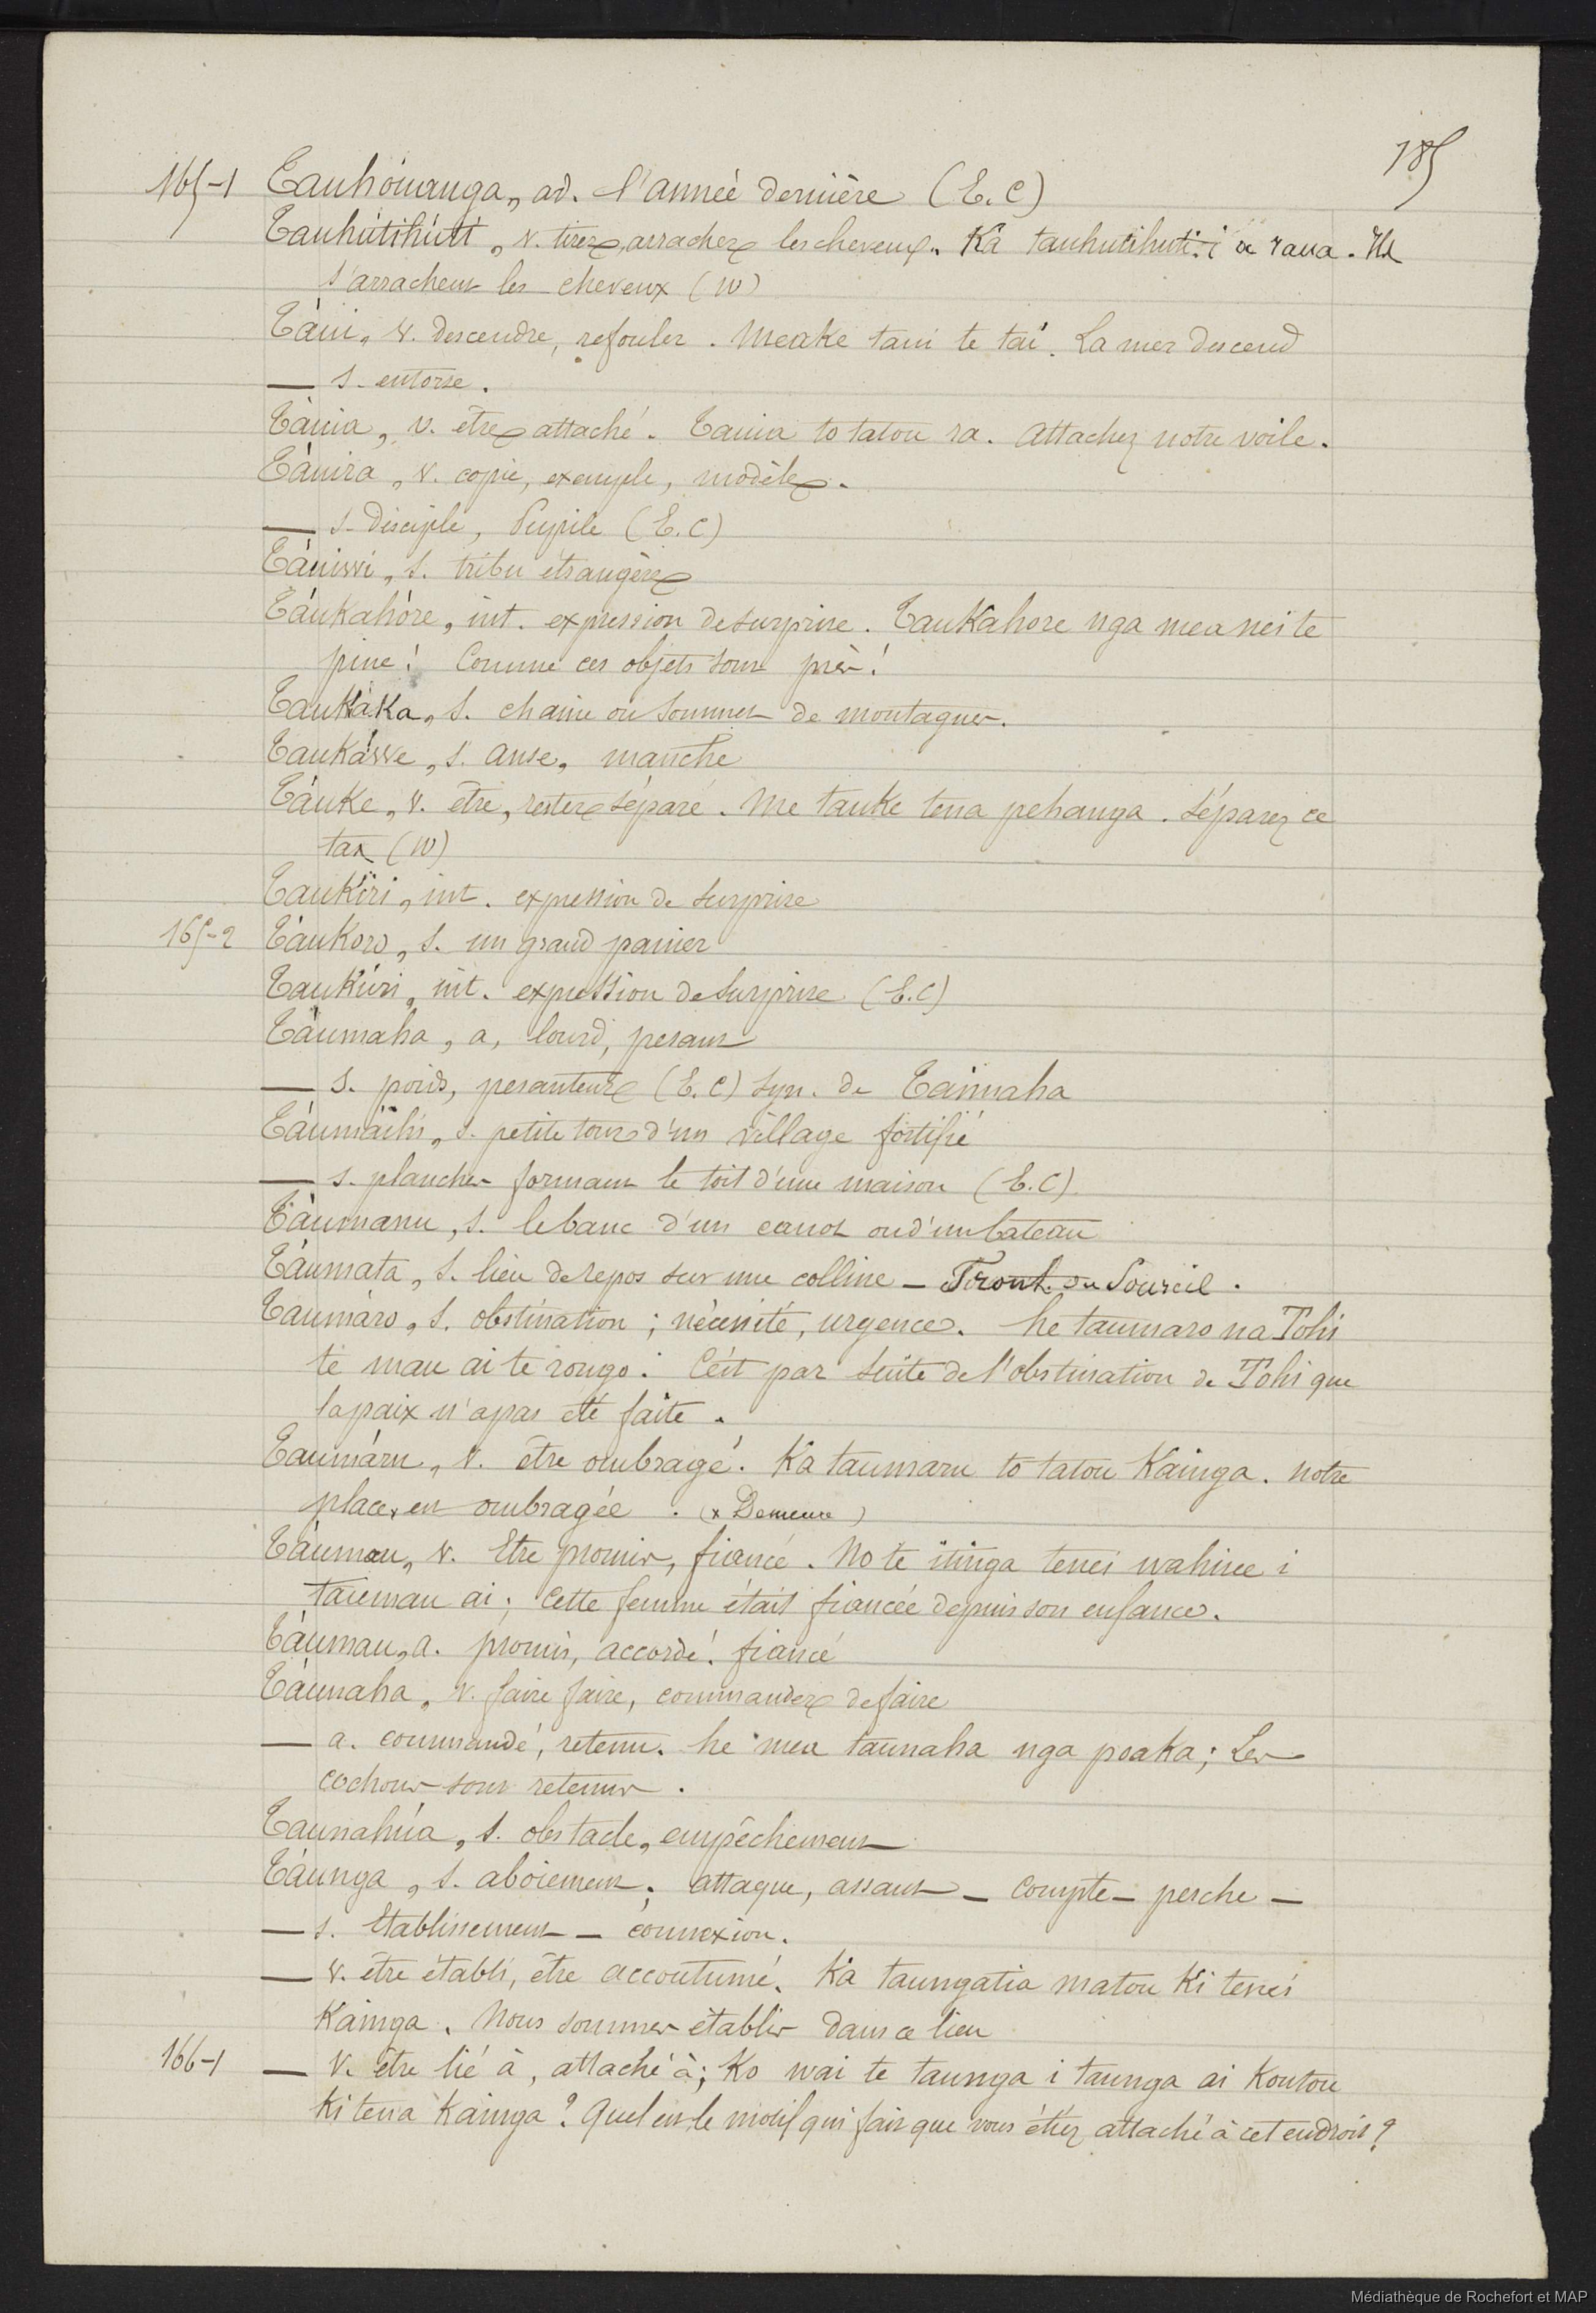 185
165-1 Tauhóuanga, ad. l'année dernière (E.C)
Tauhútihúti, v. tirer, arracher les cheveux. Ka tauhutihuti i a raua. Ils
s'arrachent les cheveux (W)
Táui, v. descendre, refouler. Meake taui te tai. La mer descend
— s. entorse.
Táuia, v. être attaché. Tauia to tatou ra. Attachez notre voile.
Táuira, v. copie, exemple, modèle.
— s. Disciple, Pupile (E.C)
Táuiwi, s. tribu étrangère
Táukahóre, int. expression de surprise. Taukahore nga mea nei te
pine! Comme ces objets sont près!
Taukáka, s. chaine ou sommet de montagnes.
Taukáwe, s. anse, manche
Táuke, v. être, rester séparé. Me tauke tena pehanga. Séparez ce
tax (W)
Taukíri, int. expression de surprise
165-2 Táukoro, s. un grand panier
Taukúri, int. expression de surprise (E.C)
Táumaha, a, lourd, pesant
— s. poids, pesanteur (E.C) syn. de Taimaha
Táumáihi, s. petite tour d'un village fortifié
— s. plancher formant le toit d'une maison (E.C)
Táumanu, s. le banc d'un canot ou d'un bateau
Táumata, s. lieu de repos sur une colline — Front ou Sourcil.
Taumáro, s. obstination ; nécessité, urgence. he taumaro na Tohi
te mau ai te rongo : C'est par suite de l'obstination de Tohi que
la paix n'a pas été faite.
Taumáru, v. être ombragé. Ka taumaru to tatou Kainga. notre
place x est ombragée . (x Demeure)
Táumau, v. Etre promis, fiancé. No te itinga tenei wahine i
taumau ai; Cette femme était fiancée depuis son enfance.
Táumau, a. promis, accordé. fiancé
Táunaha, v. faire faire, commander de faire
— a. commandé, retenu. he mea taunaha nga poaka; Les
cochons sont retenus.
Taunahúa, s. obstacle, empêchement
Táunga, s. aboiement; attaque, assaut — compte — perche —
— s. Etablissement — connexion.
— v. être établi, être accoutumé. Ka taungatia matou Ki tenei
Kainga. Nous sommes établis dans ce lieu
166-1 — v. être lié à, attaché à; Ko wai te taunga i taunga ai Koutou
Ki tena Kainga? Quel est le motif qui fait que vous étiez attaché à cet endroit?
Médiathèque de Rochefort et MAP